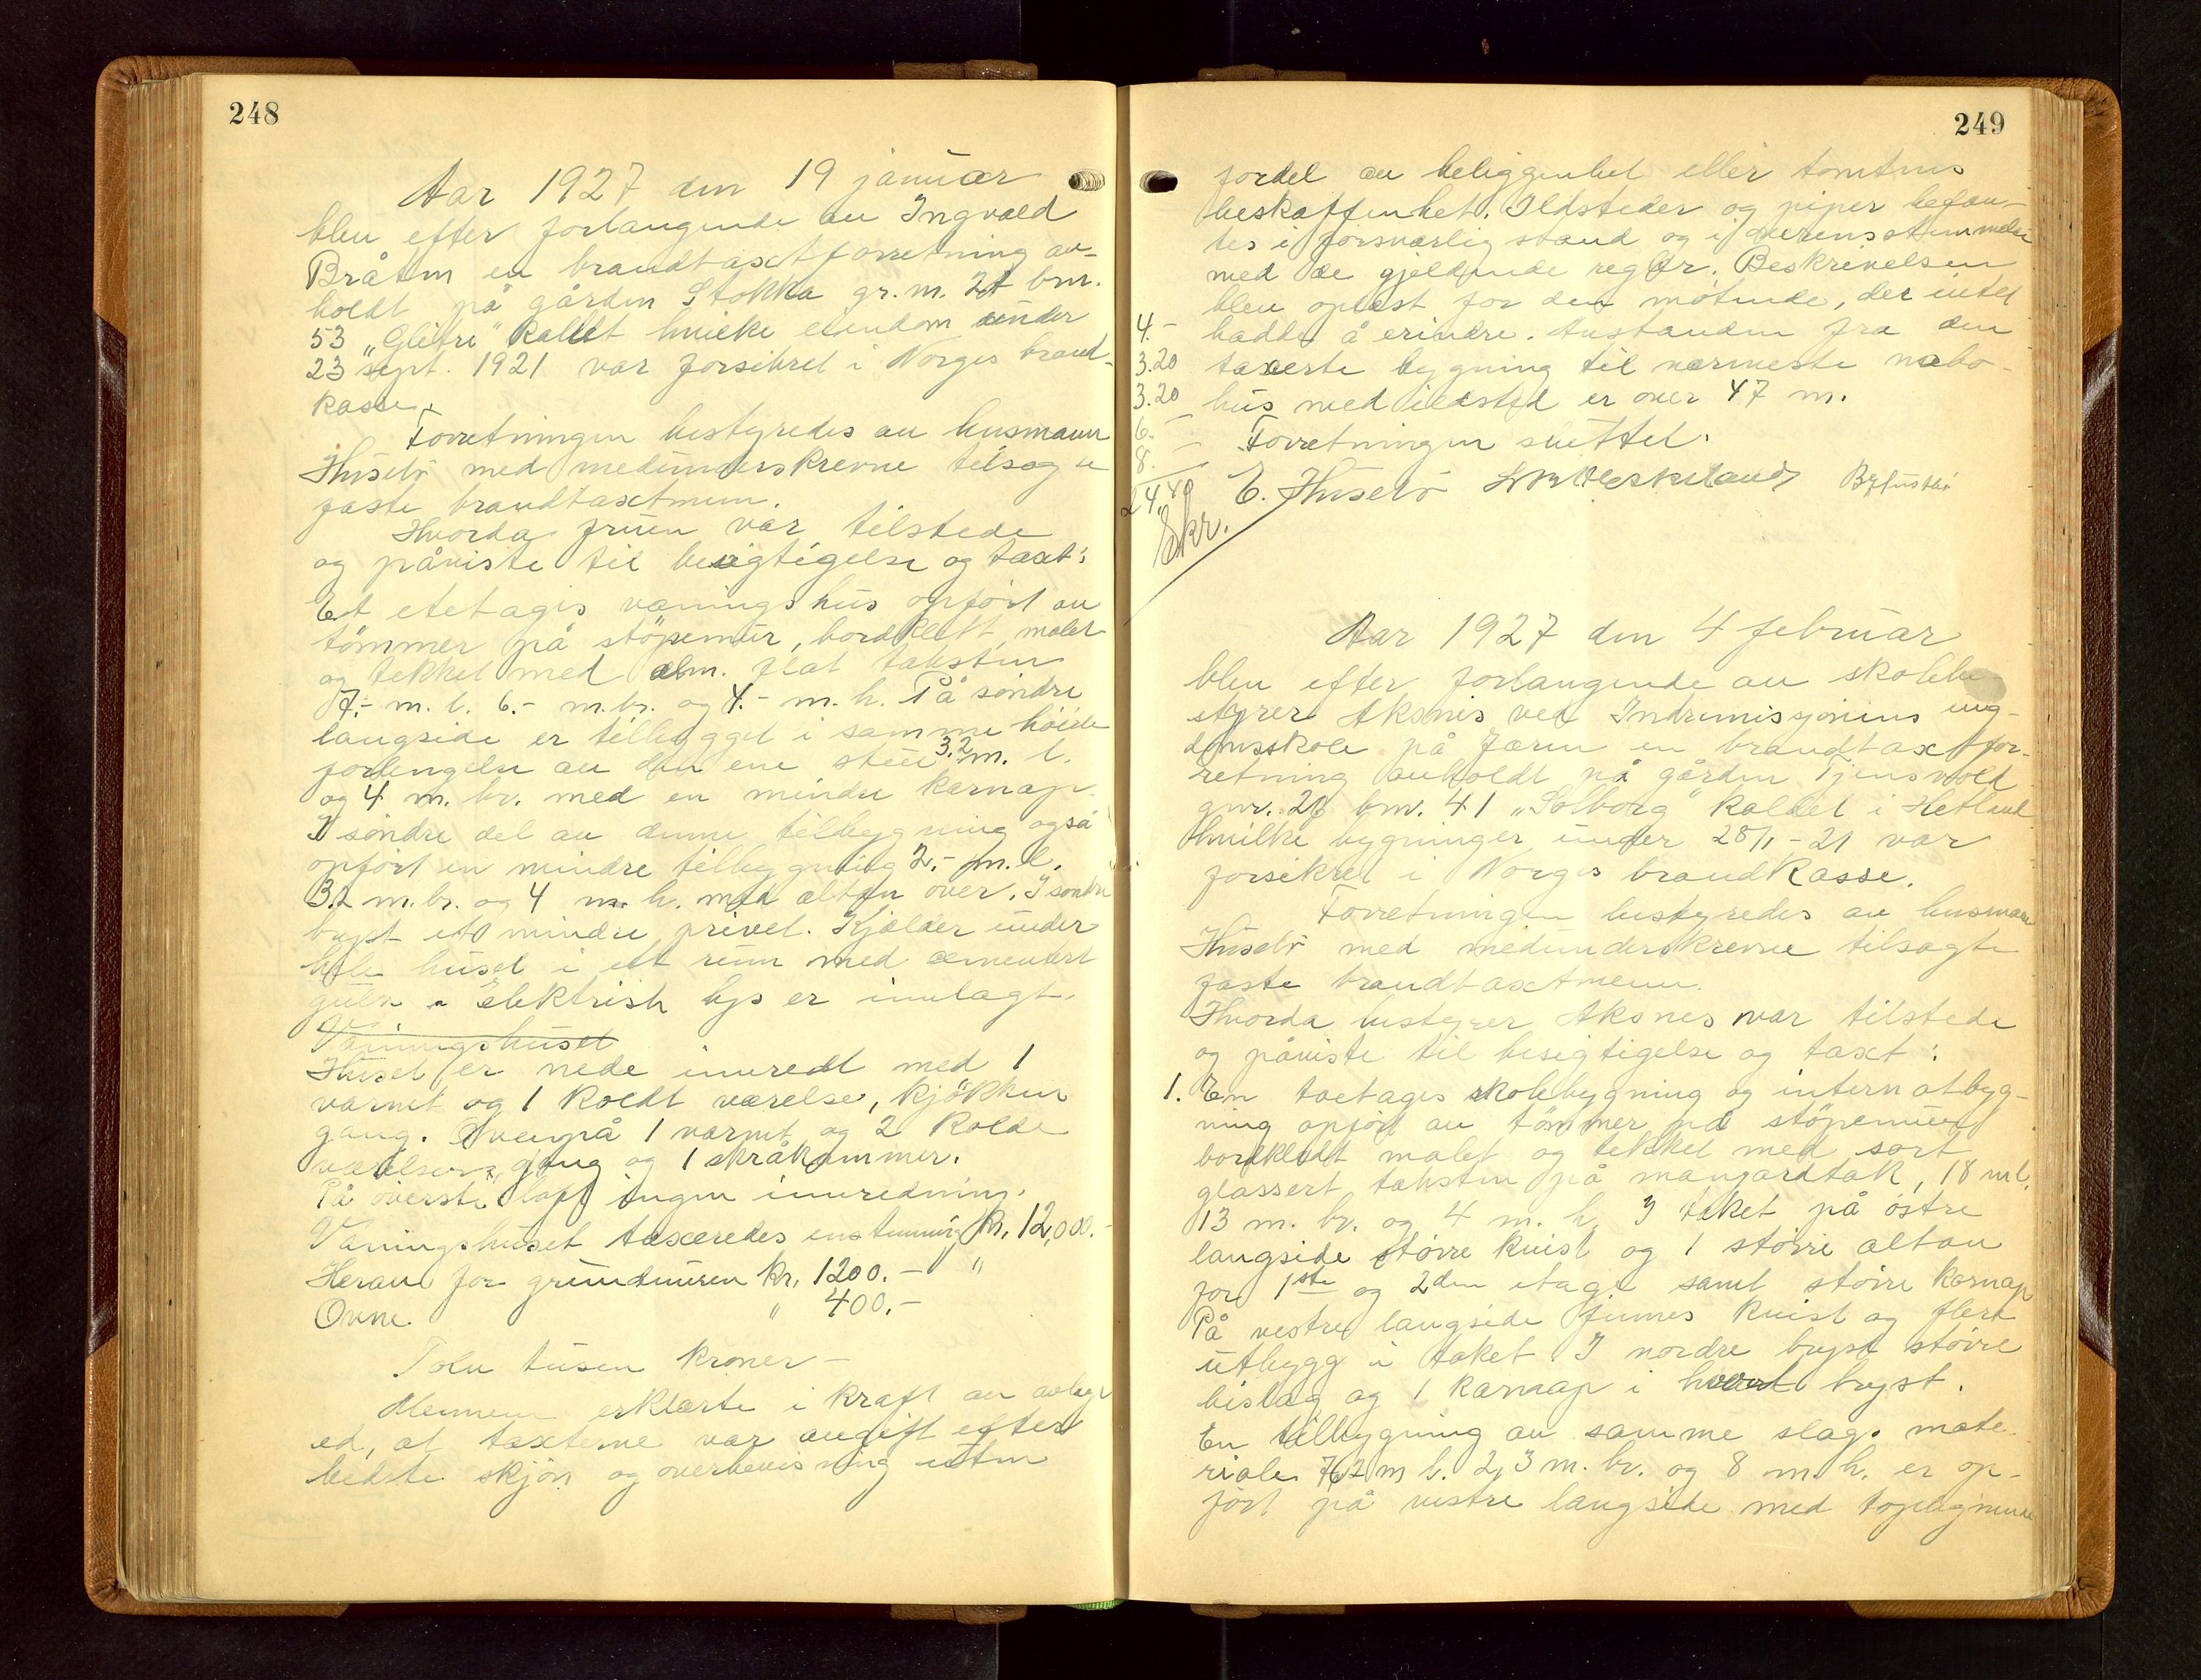 248
Aar 1927 den 19 januar
blev efter forlangende av Ingvald
Bråten en brandtaxtforretning av-
holdt på gården Stokka gr. m. 21 bnr.
53 „Glitre" kallet hvilke eiendom under
23 sept. 1921 var forsikret i Norges brand-
kasse.
Forretningen bestyredes av husmann
Husebø med medunderskrevne tilsagte
faste brandtaxtmenn.
Hvorda fruen var tilstede
og påviste til besigtigelse og taxt:
Et etetages våningshus opført av
tömmer på stöpemur, bordklett malet
og tekket med alm. flat taksten
7.- m. l. 6.- m. br. og 4.- m. h. På söndre
langside er tilbygget i samme höide
forlengelse av den ene stue 3.2 m. l.
og 4 m. br. med en mindre karnap.
I söndre del av denne tilbygning også
opfört en mindre tilbygning 2.- m. l.
3.2 m. br. og 4 m. h. med altan over. I söndre
bryst et mindre privet. Kjelder under
hele huset i ett rum med cementert
gulv. Elektrisk lys er innlagt.
Våningshuset
Huset er nede innredt med 1
varmt og 1 koldt værelse, kjökken
gang. Ovenpå 1 varmt og 2 kolde
værelser, gang og 1 skråkammer.
På överste loft ingen innredning.
Våningshuset taxeredes enstemmig kr. 12,000.-
Herav for grundmuren kr. 1200.- "
Ovne " 400.-
Tolv tusen kroner -
Mennene erklærte i kraft av avlagt
ed, at taxterne var avgift efter
bedste skjön og overbevisning uten
249
fordel av beliggenhet eller tomtens
beskaffenhet. Ildsteder og piper befan-
tes i forsvarlig stand og i overensstemmelse
med de gjeldende regler. Beskrivelsen
blev oplest for den mötende, der intet
4.- hadde å erindre. Avstanden fra den
3.20 taxerte bygning til nærmeste nabo-
3.20 hus med ildsted er over 47 m.
6.- Forretningen sluttet.
8.-
24.40 E. Husebö
Skr.
Aar 1927 den 4 februar
blev efter forlangende av skolebe-
styrer Aksnes ved Indremisjonens ung-
domsskole på Jæren en brandtaxtfor-
retning avholdt på gården Tjensvold
gnr. 28 bnr. 41 „Solborg" kaldet i Hetland
hvilke bygninger under 28/1 - 21 var
forsikret i Norges brandkasse.
Forretningen bestyredes av husmann
Husebö med medunderskrevne tilsagte
faste brandtaxtmenn.
Hvorda bestyrer Aksnes var tilstede
og påviste til besigtigelse og taxt:
1. En toetages skolebygning og internatbyg-
ning opfört av tömmer på stöpemur
bordkledt malet og tekket med sort
glassert taksten på mangardtak, 18 m l.
13 m. br. og 4 m. h. I taket på östre
langside större kvist og 1 större altan
for 1ste og 2den etage samt större karnap
På vestre langside finnes kvist og flere
utbygg i taket. I nordre bryst större
bislag og 1 karnap i hvert bryst.
En tilbygning av samme slags mate-
riale 7,2 m l. 2,3 m. br. og 8 m. h. er op-
fört på vestre langside med